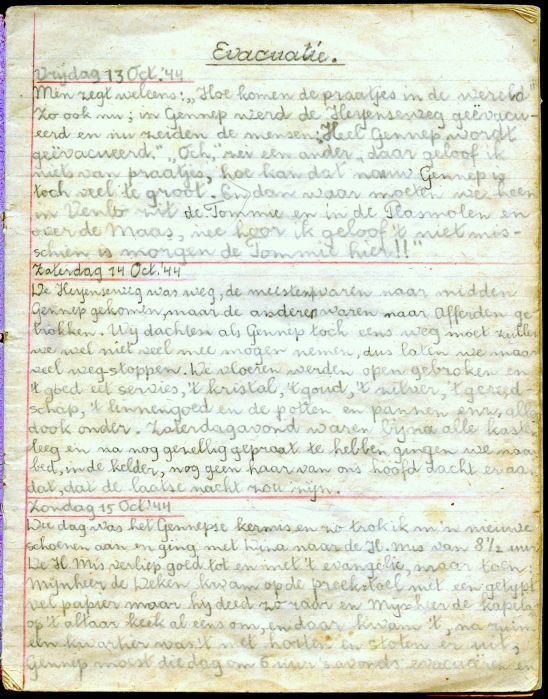 Evacuatie.
Vrijdag 13 Oct. '44
Men zegt weleens: „Hoe komen de praatjes in de wereld"
Zo ook nu; in Gennep werd de Heyenseweg geëvacu-
eerd en nu zeiden de mensen: „Heel Gennep wordt
geëvacueerd." „Och," zei een ander, „daar geloof ik
niet van praatjes, hoe kan dat nouw Gennep is
toch veel te groot. En dan waar moeten we heen
in Venlo zit de Tommie en in de Plasmolen en
over de Maas, nee hoor ik geloof 't niet mis-
schien is morgen de Tommie hier!!"
Zaterdag 14 Oct. '44
De Heyenseweg was weg, de meesten waren naar midden
Gennep gekomen, maar de anderen waren naar Afferden ge-
trokken. Wij dachten als Gennep toch eens weg moet zullen
we wel niet veel mee mogen nemen, dus laten we maar
veel wegstoppen. De vloeren werden open gebroken en
't goed eet servies, 't kristal, 't goud, 't zilver, 't gereed-
schap, 't linnengoed en de potten en pannen enz, alles
dook onder. Zaterdagavond waren bijna alle kasten
leeg en na nog gezellig gepraat te hebben gingen we naar
bed, in de kelder, nog geen haar van ons hoofd dacht eraan
dat, dat de laatse nacht zou zijn.
Zondag 15 Oct '44
Die dag was het Gennepse kermis en zo trok ik m'n nieuwe
schoenen aan en ging met Dina naar de H. Mis van 8½ uur.
De H. Mis verliep goed tot en met 't evangelie, maar toen:
Mijnheer de Deken kwam op de preekstoel met een getypt
vel papier maar hij deed zo raar en Mijnheer de kapela-
op 't altaar keek al eens om, en daar kwam 't, na ruim
een kwartier was 't met horten en stoten er uit,
Gennep moest die dag om 6 uur 's avonds evacueren en